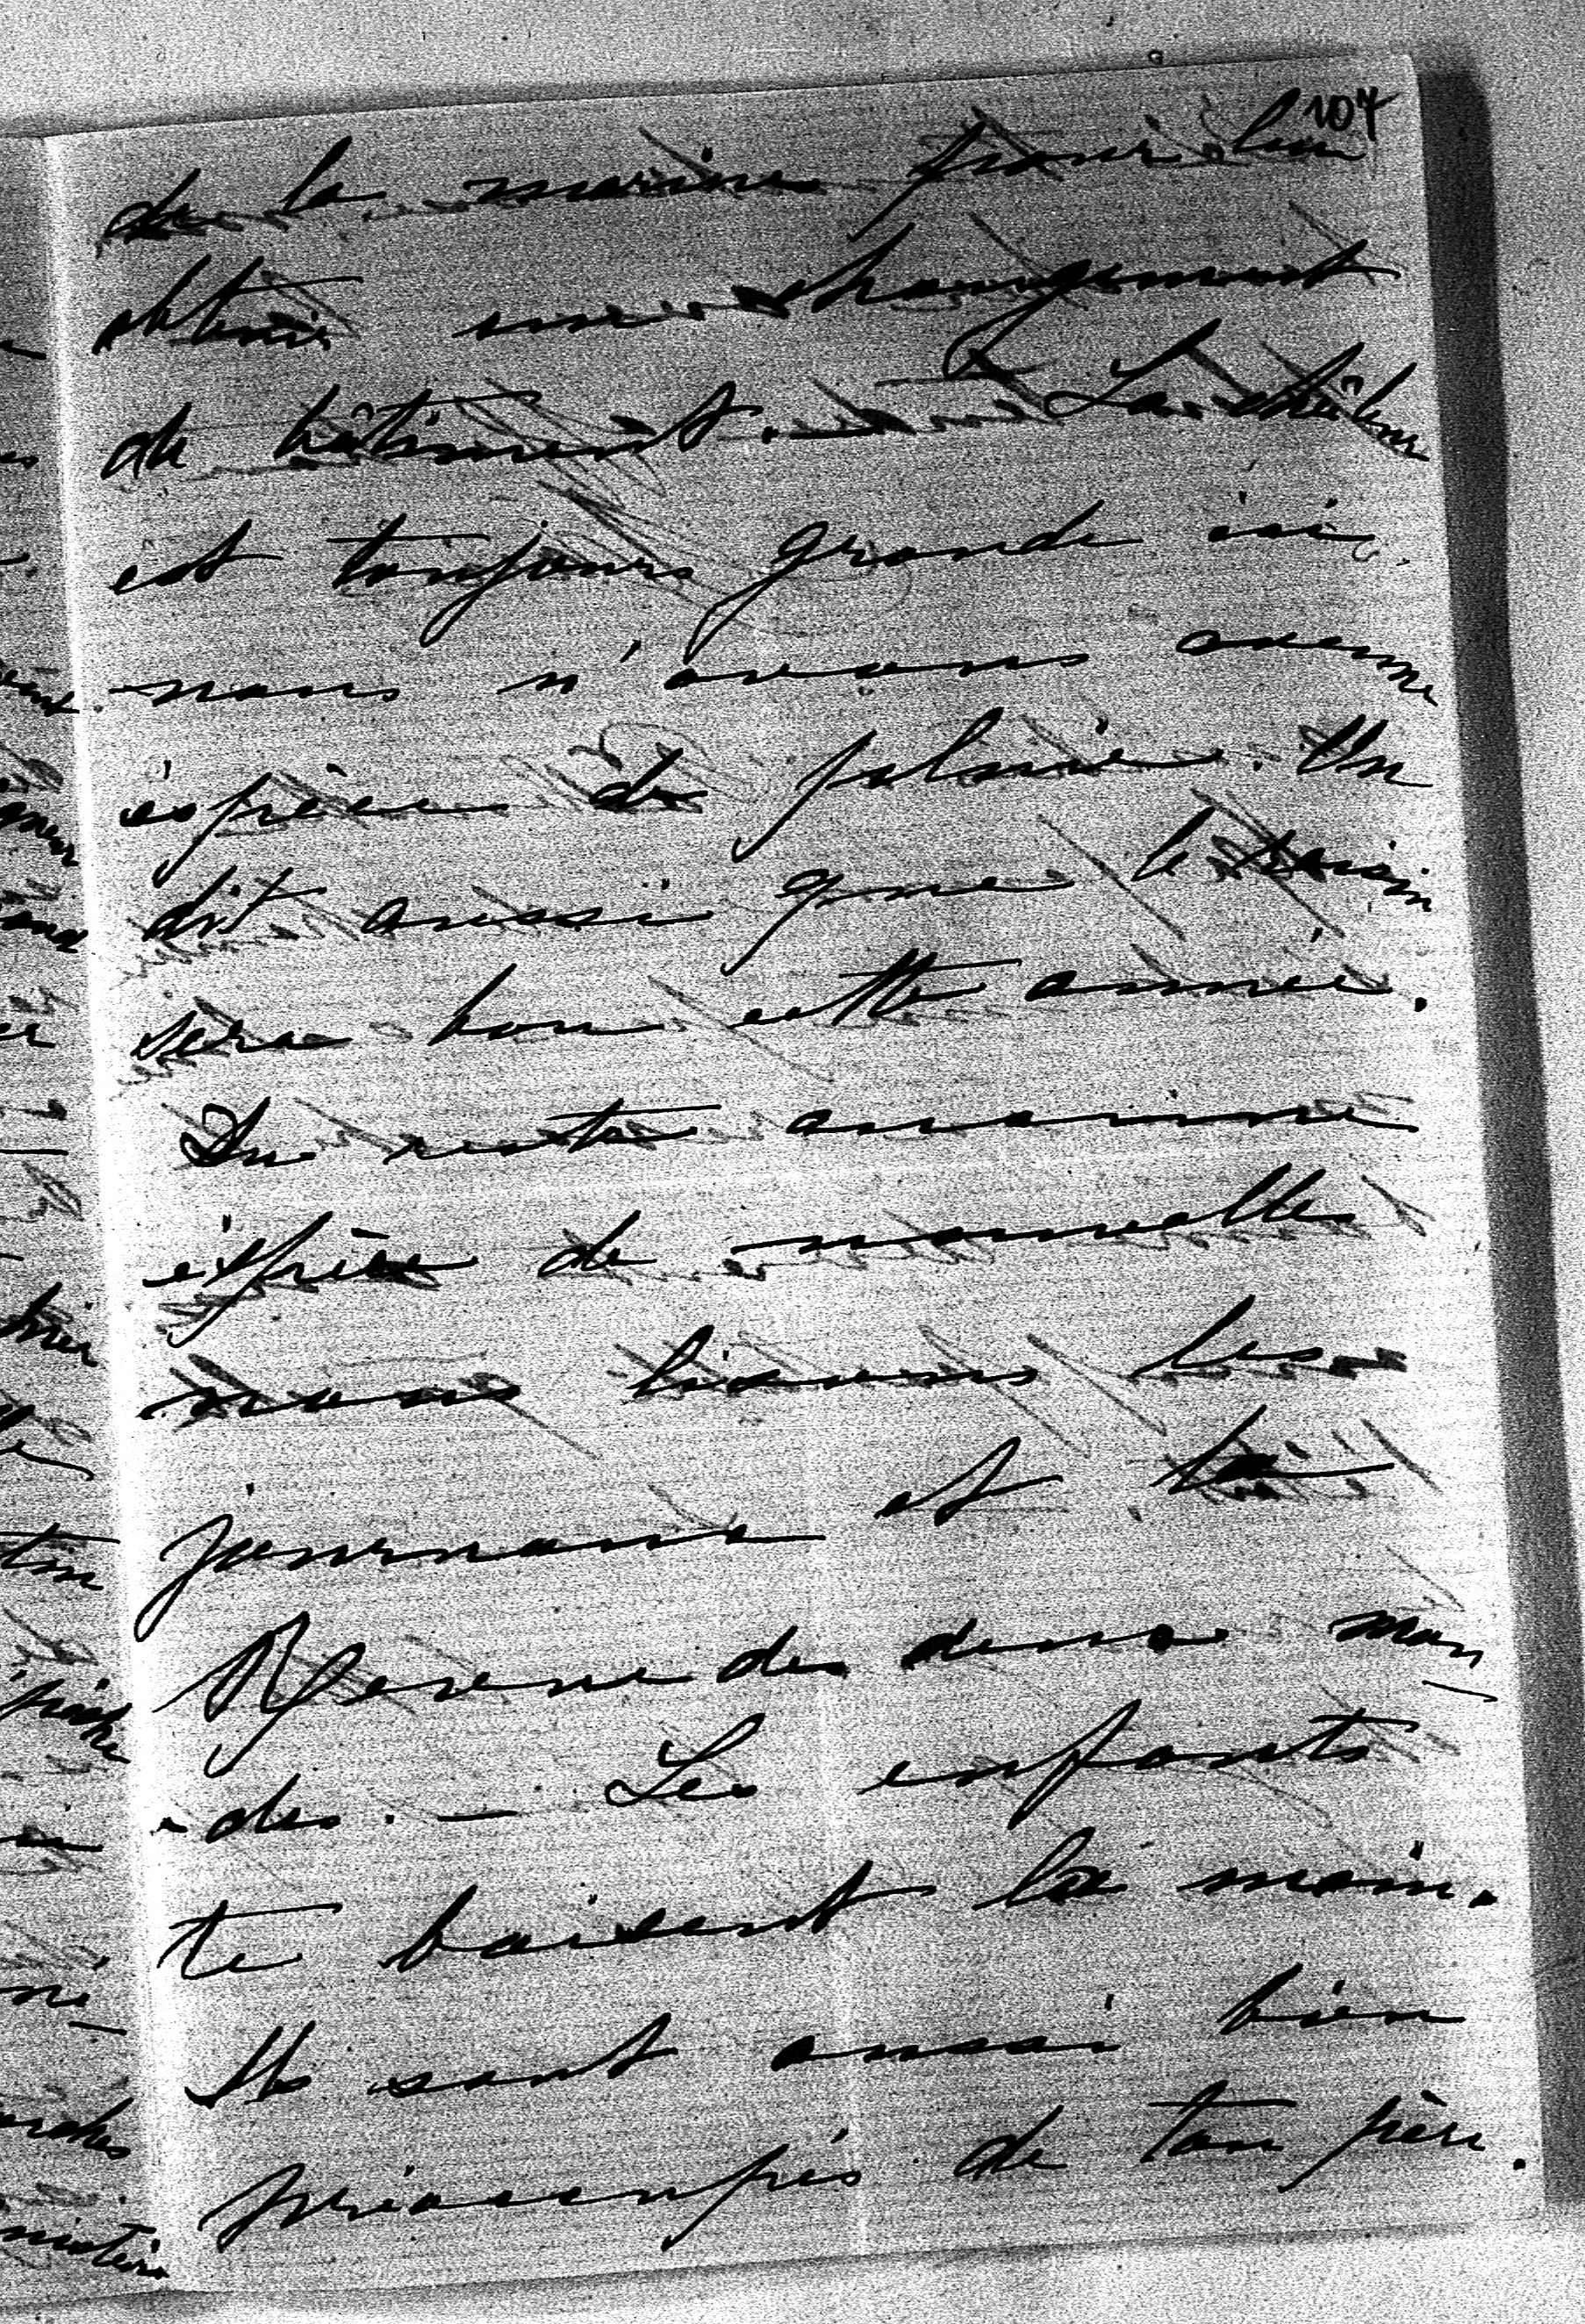 107
de la marine pour lui
obtenir un changement
de bâtiment. — La chaleur
est toujours grande ici
nous n'avons aucune
espèce de pluie. On
dit aussi que le raisin
sera bon cette année.
Du reste aucune
espèce de nouvelle
nous lisons les
journaux et la
Revue des deux mon
-des. — Les enfants
te baisent la main.
Ils sont aussi bien
préoccupés de ton père.